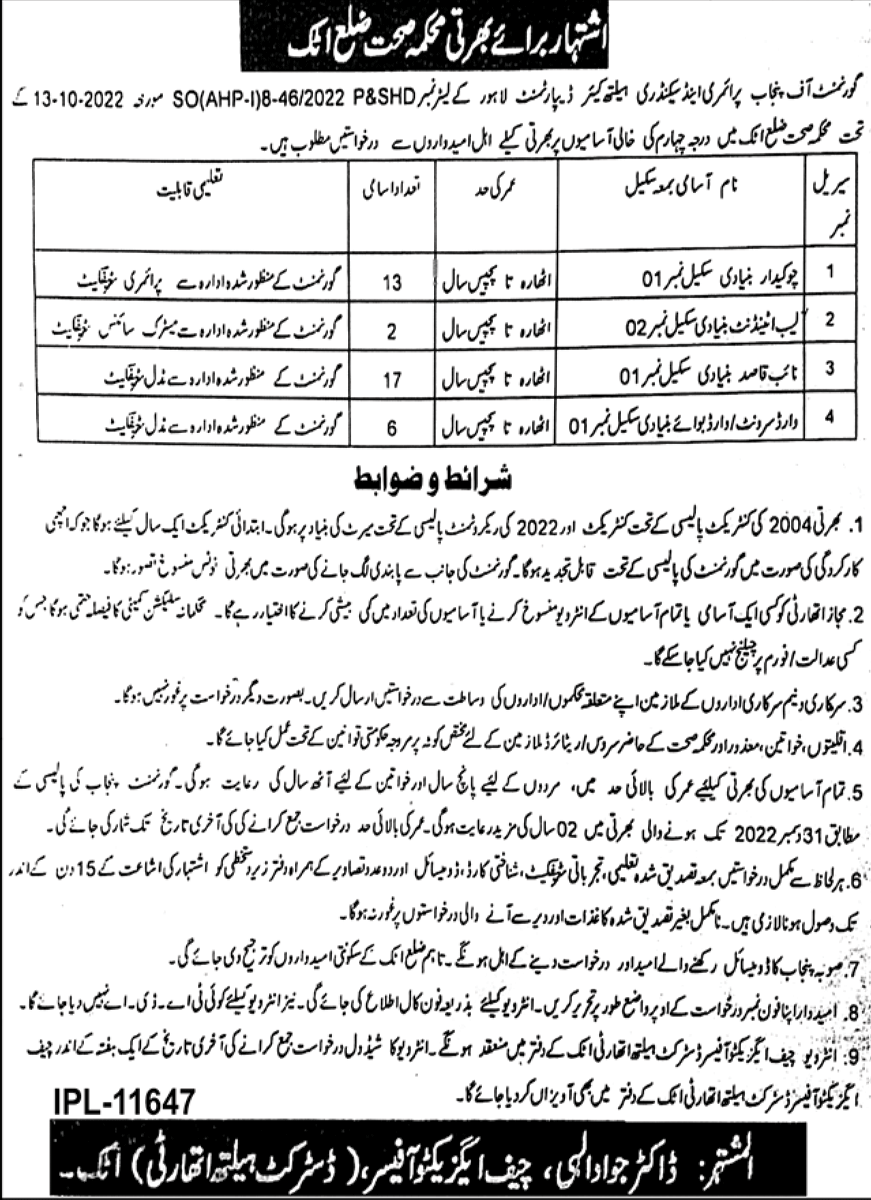 اشتہار برائے بھرتی محکمہ صحت ضلع اٹک
گورنمنٹ آف پنجاب پرائمری اینڈ سیکنڈری ہیلتھ کیئر ڈیپارٹمنٹ لاہور کے لیٹر نمبر SO(AHP-I)8-46/2022 P&SHD مورخہ 13-10-2022 کے
تحت محکمہ صحت ضلع اٹک میں درجہ چہارم کی خالی آسامیوں پر بھرتی کیلئے اہل امیدواروں سے درخواستیں مطلوب ہیں۔
سیریل نمبر | نام آسامی بمعہ سکیل | عمر کی حد | تعداد اسامی | تعلیمی قابلیت
1 | چوکیدار بنیادی سکیل نمبر 01 | اٹھارہ تا پچیس سال | 13 | گورنمنٹ کے منظور شدہ ادارہ سے پرائمری سرٹیفکیٹ
2 | لیب اٹینڈنٹ بنیادی سکیل نمبر 02 | اٹھارہ تا پچیس سال | 2 | گورنمنٹ کے منظور شدہ ادارہ سے میٹرک سائنس سرٹیفکیٹ
3 | نائب قاصد بنیادی سکیل نمبر 01 | اٹھارہ تا پچیس سال | 17 | گورنمنٹ کے منظور شدہ ادارہ سے مڈل سرٹیفکیٹ
4 | وارڈ سرونٹ/وارڈ بوائے بنیادی سکیل نمبر 01 | اٹھارہ تا پچیس سال | 6 | گورنمنٹ کے منظور شدہ ادارہ سے مڈل سرٹیفکیٹ
شرائط و ضوابط
1. بھرتی 2004 کی کنٹریکٹ پالیسی کے تحت کنٹریکٹ اور 2022 کی ریکروٹمنٹ پالیسی کے تحت میرٹ کی بنیاد پر ہوگی۔ ابتدائی کنٹریکٹ ایک سال کیلئے ہوگا جو کہ اچھی
کارکردگی کی صورت میں گورنمنٹ کی پالیسی کے تحت قابل تجدید ہوگا۔ گورنمنٹ کی جانب سے پابندی لگ جانے کی صورت میں بھرتی نوٹس منسوخ تصور ہوگا۔
2. مجاز اتھارٹی کو کسی ایک آسامی یا تمام آسامیوں کے انٹرویو منسوخ کرنے یا آسامیوں کی تعداد میں کمی بیشی کرنے کا اختیار رہے گا۔ محکمانہ سلیکشن کمیٹی کا فیصلہ حتمی ہوگا جس کو
کسی عدالت/فورم پر چیلنج نہیں کیا جا سکے گا۔
3. سرکاری و نیم سرکاری اداروں کے ملازمین اپنے متعلقہ محکموں/اداروں کی وساطت سے درخواستیں ارسال کریں۔ بصورت دیگر درخواست پر غور نہیں ہوگا۔
4. اقلیتوں، خواتین، معذور اور محکمہ صحت کے حاضر سروس/ریٹائرڈ ملازمین کے لئے مختص کوٹہ پر مروجہ حکومتی قوانین کے تحت عمل کیا جائے گا۔
5. تمام آسامیوں کی بھرتی کیلئے عمر کی بالائی حد میں، مردوں کے لیئے پانچ سال اور خواتین کے لیئے آٹھ سال کی رعایت ہوگی۔ گورنمنٹ پنجاب کی پالیسی کے
مطابق 31 دسمبر 2022 تک ہونے والی بھرتی میں 02 سال کی مزید رعایت ہوگی۔ عمر کی بالائی حد درخواست جمع کرانے کی کی آخری تاریخ تک شمار کی جائے گی۔
6. ہر لحاظ سے مکمل درخواستیں بمعہ تصدیق شدہ تعلیمی، تجرباتی سرٹیفکیٹ، شناختی کارڈ، ڈومیسائل اور دو عدد تصاویر کے ہمراہ دفتر زیر دستخطی کو اشتہار کی اشاعت کے 15 دن کے اندر
تک وصول ہونا لازمی ہیں۔ نامکمل بغیر تصدیق شدہ کاغذات اور دیر سے آنے والی درخواستوں پر غور نہ ہوگا۔
7. صوبہ پنجاب کا ڈومیسائل رکھنے والے امیدوار درخواست دینے کے اہل ہونگے۔ تاہم ضلع اٹک کے سکونتی امیدواروں کو ترجیح دی جائے گی۔
8. امیدوار اپنا فون نمبر درخواست کے اوپر واضع طور پر تحریر کریں۔ انٹرویو کیلئے بذریعہ فون کال اطلاع کی جائے گی۔ نیز انٹرویو کیلئے کوئی ٹی اے۔ ڈی۔ اے نہیں دیا جائے گا۔
9. انٹرویو چیف ایگزیکٹو آفیسر ڈسٹرکٹ ہیلتھ اتھارٹی اٹک کے دفتر میں منعقد ہونگے۔ انٹرویو کا شیڈول درخواست جمع کرانے کی آخری تاریخ کے ایک ہفتہ کے اندر چیف
ایگزیکٹو آفیسر ڈسٹرکٹ ہیلتھ اتھارٹی اٹک کے دفتر میں بھی آویزاں کر دیا جائے گا۔
IPL-11647
المشتہر: ڈاکٹر جواد الٰہی، چیف ایگزیکٹو آفیسر، (ڈسٹرکٹ ہیلتھ اتھارٹی) اٹک۔